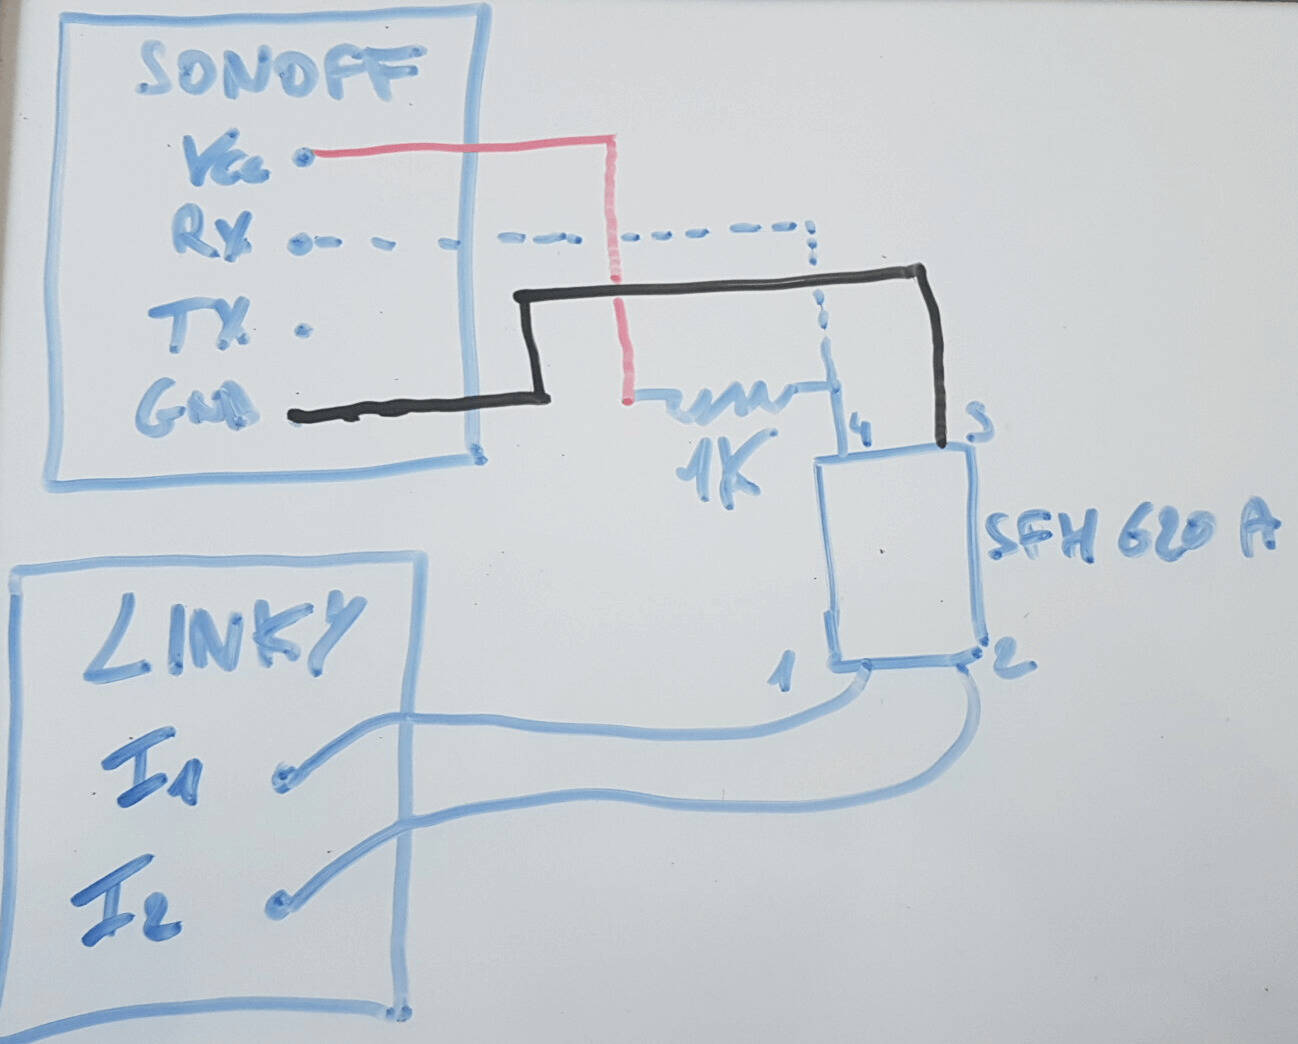 SONOFF
Vcc
RX
TX
GND
1K
4
3
SFH 620 A
1
2
LINKY
I1
I2